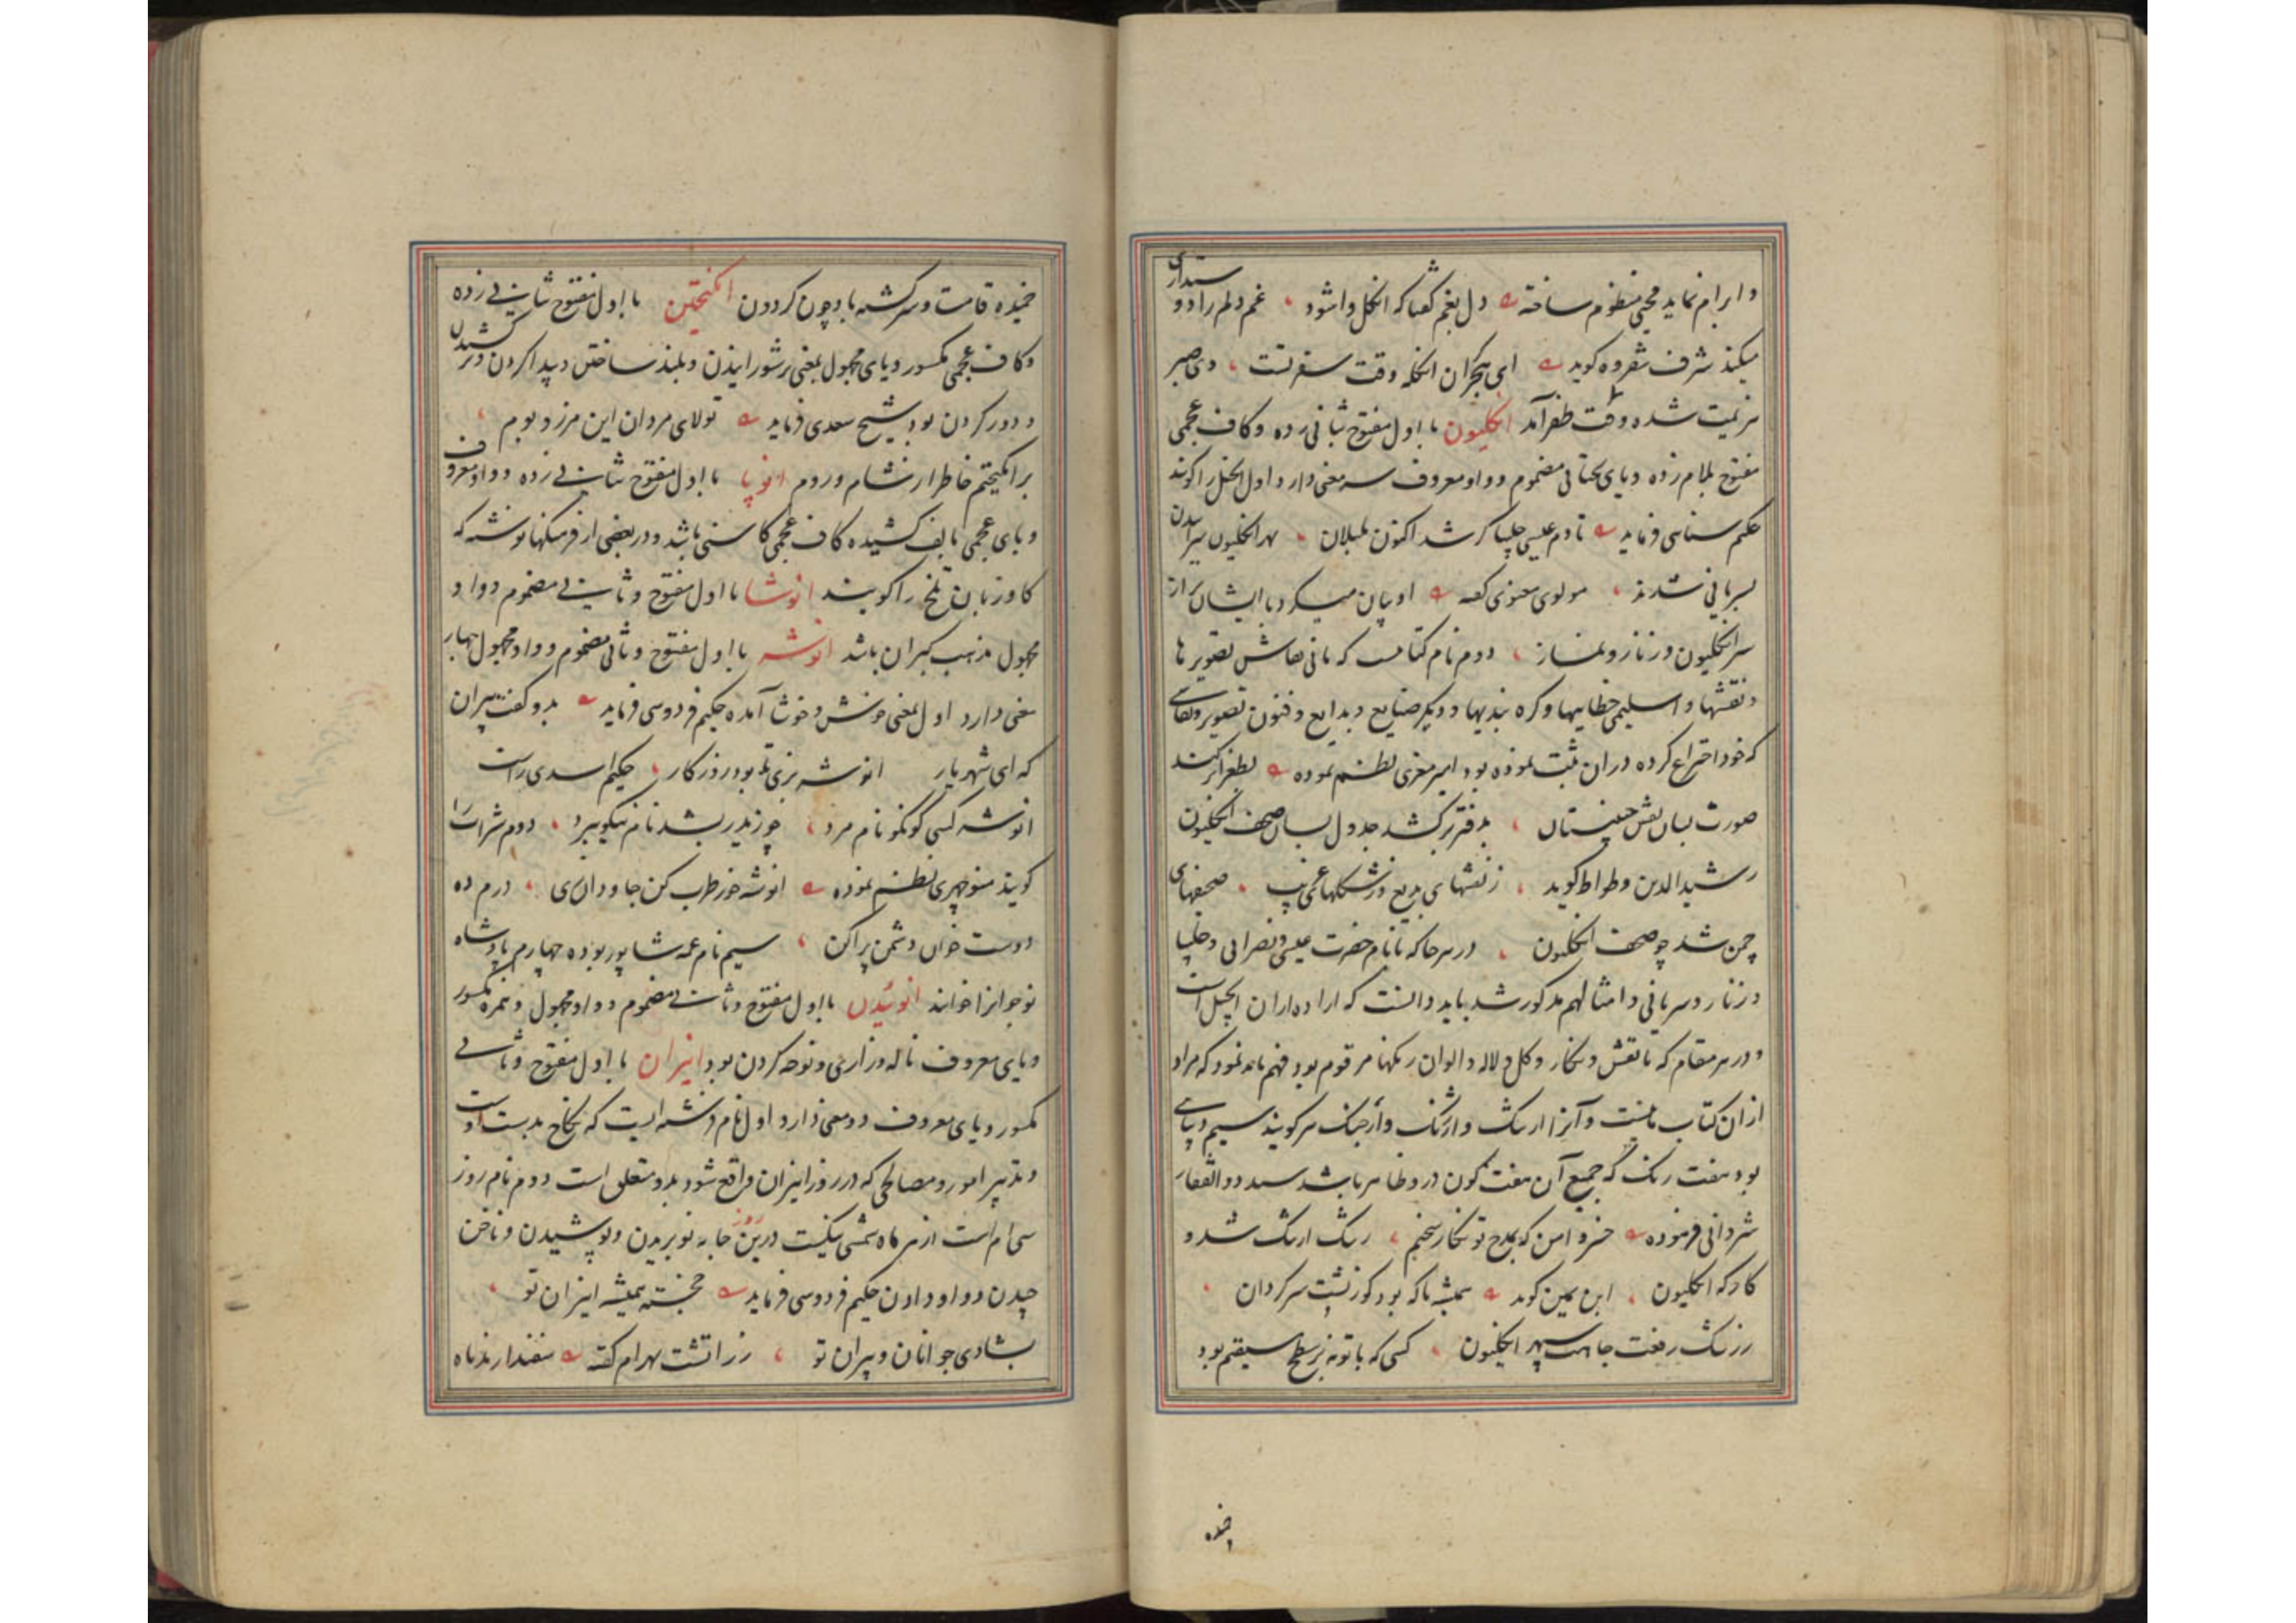 و ابرام نماید محیی منظوم ساخته دل بغم گفتا که انگل واشود غم دلم را دو ستداری
میکند شرف شفروه گوید ای هجر ان انگله وقت سفر تست وی صبر
هزیمت شده وقت ظفر آمد انگلیون با اول مفتوح بثانی زده و کاف عجمی
مفتوح بلام زده و یای تحتانی مضموم و واو معروف سه معنی دارد اول انجیل را گویند
حکیم سنایی فرماید تا دم عیسی چلیپا گر شد اکنون بلبلان بهر انگلیون سراییدن
بسریانی شدند مولوی معنوی گفته او بیان میکرد با ایشان راز
سر انگلیون و زنار و نماز دوم نام کتابیست که مانی نقاش تصویرها
و نقشها و اسلیمی خطاییها و گره بندیها و دیگر صنایع و بدایع و فنون تصویر و نقاشی
که خود اختراع کرده در ان ثبت نموده بود امیر معزی نظم نموده
صورت بسان نقش چینستان بدفتر برکشد جدول بسان صحف انگلیون
رشید الدین وطواط گوید ز نقشهای بدیع و ز شکلهای عجیب صحیفهای
چمن شد چو صحف انگلیون در هر جا که با نام حضرت عیسی و نصرانی و چلیپا
و زنار و سریانی و امثالهم مذکور شد باید دانست که اراده ازان انجیل است
و در هر مقام که با نقش و نگار و گل و لاله و الوان رنگها مرقوم بود فهم باید نمود که مراد
ازان کتاب مانیست و آنرا ارتنگ و ارژنگ و ارجنگ هر گویند سیم دیبایی
بود هفت رنگ که جمیع آن هفت گون درو ظاهر باشد سید ذوالفقار
شروانی فرموده خسروا من که بمدح تو نگار سخنم رشک ارتنگ شد و
کارگه انگلیون ابن یمین گوید همیشه تا که بود گوز پشت سرگردان
ز رشک رفعت جاهت سپهر انگلیون کسی که با تو نه بر سطح مستقیم بود
خمیده
خمیده قامت و سرگشته باد چون گردون انگیختن با اول مفتوح بثانی زده
و کاف عجمی مکسور و یای مجهول بمعنی برشورانیدن و بلند ساختن و پیدا کردن و بر کشیدن
و دور کردن بود شیخ سعدی فرماید تولای مردان این مرز و بوم
برانگیختم خاطر از شام و روم انوپا با اول مفتوح بثانی زده و واو معروف
و بای عجمی بالف کشیده کاف عجمی کاسنی باشد و در بعضی از فرهنگها نوشته که
کاوزبان تلخ را گویند انوشا با اول مفتوح و ثانی مضموم و واو
مجهول مذهب گبران باشد انوشه با اول مفتوح و ثانی مضموم و واو مجهول چهار
معنی دارد اول بمعنی خوش و خوشا آمده حکیم فردوسی فرماید بدو گفت پیران
که ای شهریار انوشه بزی تا بود روزگار حکیم اسدی راست
انوشه کسی کو نکو نام مرد چو زیدر بشد نام نیکو ببرد دوم شراب را
گویند منوچهری نظم نموده انوشه خور طرب کن جاودان زی درم ده
دوست خوان دشمن پراکن سیم نام عمه شاپور بوده چهارم پادشاه
نوجوانرا خوانند انوئیدن با اول مفتوح و ثانی مضموم و واو مجهول و همزه مکسور
و یای معروف ناله و زاری و نوحه کردن بود انیران با اول مفتوح و ثانی
مکسور و یای معروف دو معنی دارد اول نام فرشته ایست که نکاح بدست اوست
و تدبیر امور و مصالحی که در روز انیران واقع شود بدو متعلق است دوم نام روز
سی ام است از هر ماه شمسی نیکست درین روز جامه نو بریدن و پوشیدن و ناخن
چیدن و واو دادن حکیم فردوسی فرماید خجسته همیشه انیران تو
بشادی جوانان و پیران تو زراتشت بهرام گفته سفندارمذ ماه